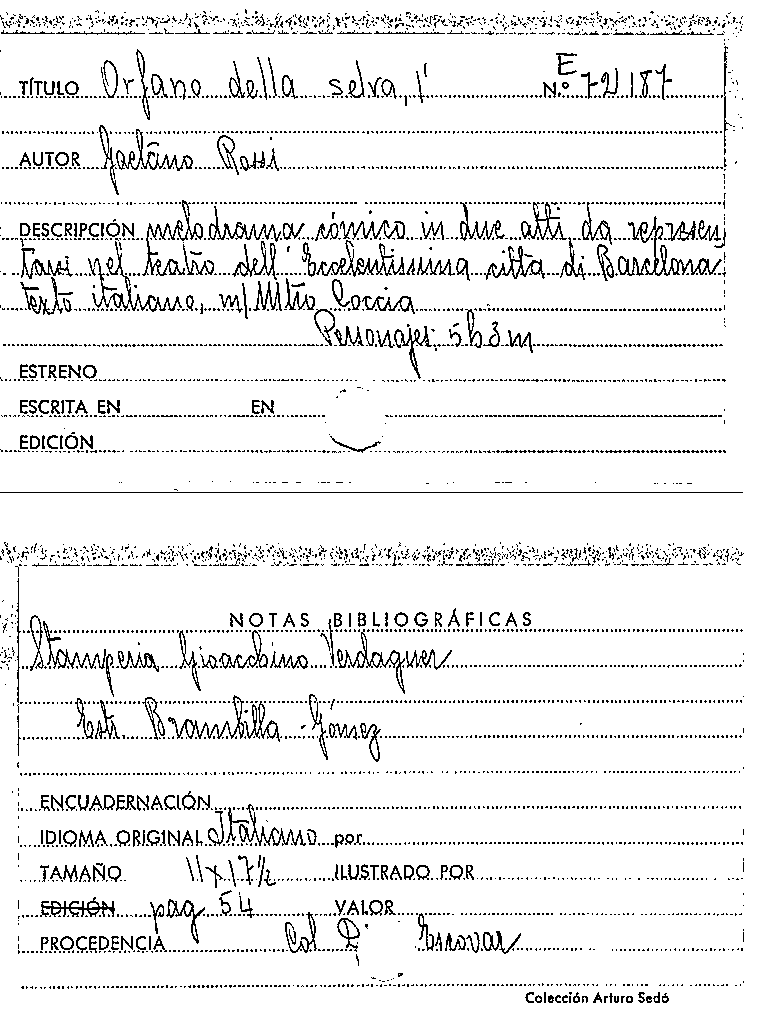 E
TÍTULO Orfano della selva, l' N.º 72187
AUTOR Gaetano Rossi
DESCRIPCIÓN melodrama cómico in due atti da represen
tarsi nel teatro dell' Eccelentissima citta di Barcelona-
texto italiano, m/ Mtro Coccia
Personajes: 5h3m
ESTRENO
ESCRITA EN EN
EDICIÓN
NOTAS BIBLIOGRÁFICAS
Stamperia Gioacchino Verdaguer
Estr. Brambilla - Gómez
ENCUADERNACIÓN
IDIOMA ORIGINAL Italiano por
TAMAÑO 11x17½ ILUSTRADO POR
EDICIÓN pag 54 VALOR
PROCEDENCIA Col D. Escovar
Colección Arturo Sedó